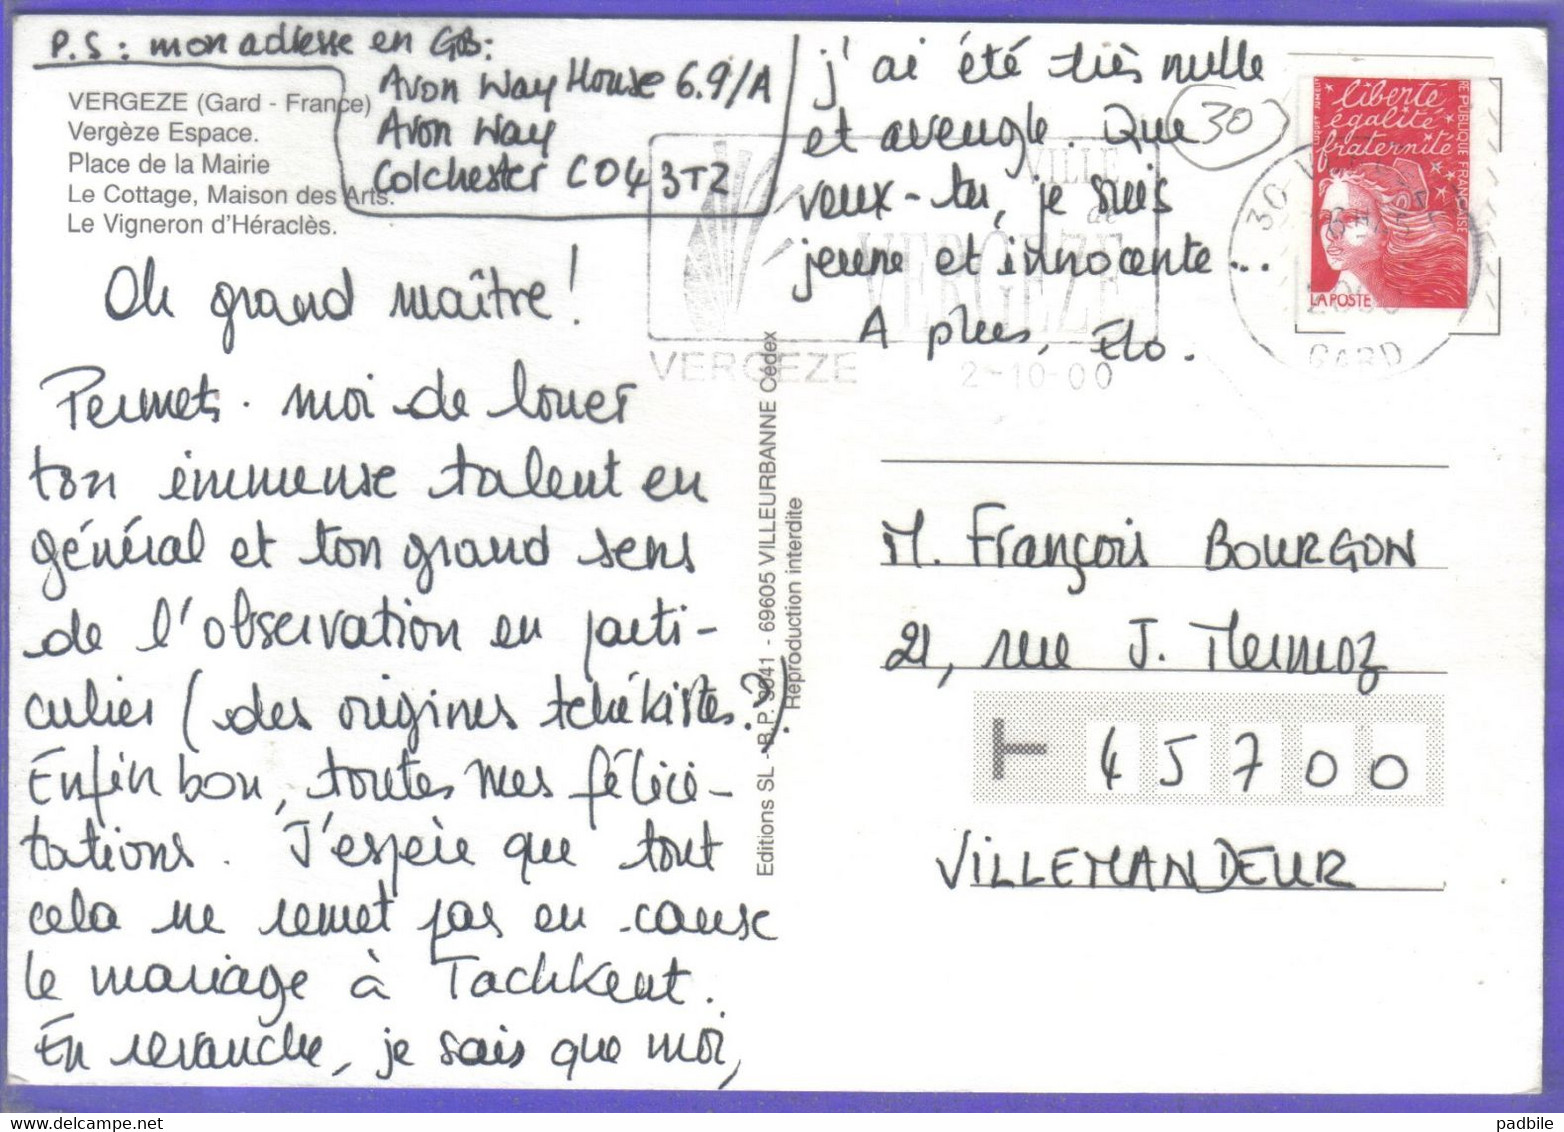 P.S : mon adresse en GB:
Avon Way House 6.9/A
Avon Way
Colchester CO4 3TZ
VERGEZE (Gard - France)
Vergèze Espace.
Place de la Mairie
Le Cottage, Maison des Arts.
Le Vigneron d'Héraclès.
Oh grand maître!
Permets-moi de louer
ton immense talent en
général et ton grand sens
de l'observation en parti-
culier (des origines tchékistes?).
Enfin bon, toutes mes félici-
tations. J'espère que tout
cela ne remet pas en cause
le mariage à Tachkent.
En revanche, je sais que moi,
j'ai été très nulle
et aveugle. Que
veux-tu, je suis
jeune et innocente...
A plus, Elo.
Editions SL - B.P. 9041 - 69605 VILLEURBANNE Cédex
Reproduction interdite
30
VILLE
de
VERGEZE
VERGEZE
2-10-00
GARD
liberté
égalité
fraternité
REPUBLIQUE FRANÇAISE
LA POSTE
M. François BOURGON
21, rue J. Mermoz
T 45700
VILLEMANDEUR
padbile